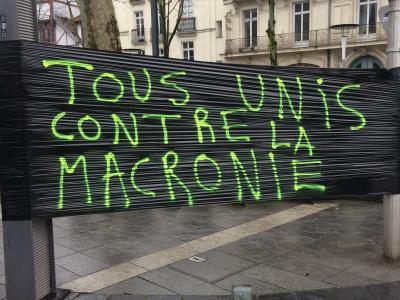 TOUS UNIS
CONTRE LA
MACRONIE